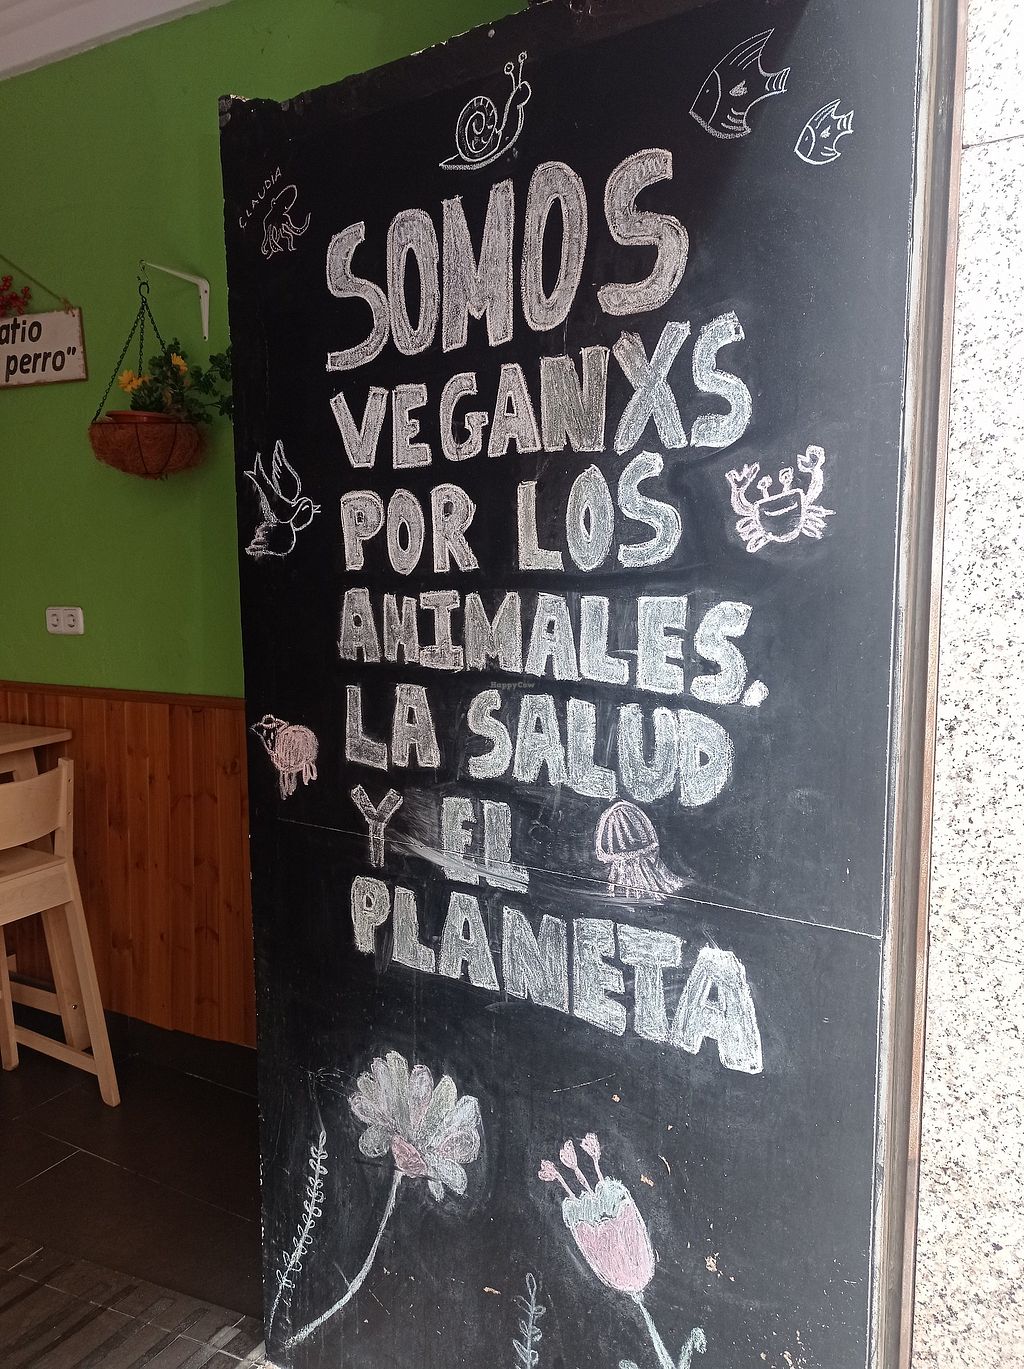 CLAUDIA
SOMOS
VEGANXS
POR LOS
ANIMALES,
LA SALUD
Y EL
PLANETA
atio
perro"
HappyCow